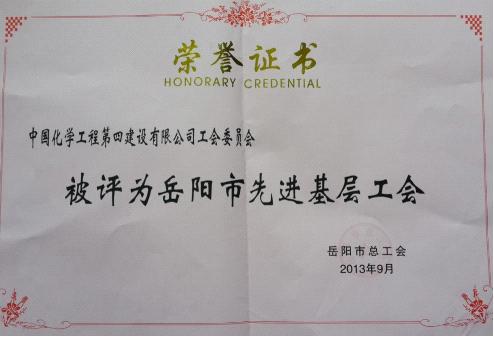 荣誉证书
HONORARY CREDENTIAL
中国化学工程第四建设有限公司工会委员会
被评为岳阳市先进基层工会
岳阳市总工会
2013年9月